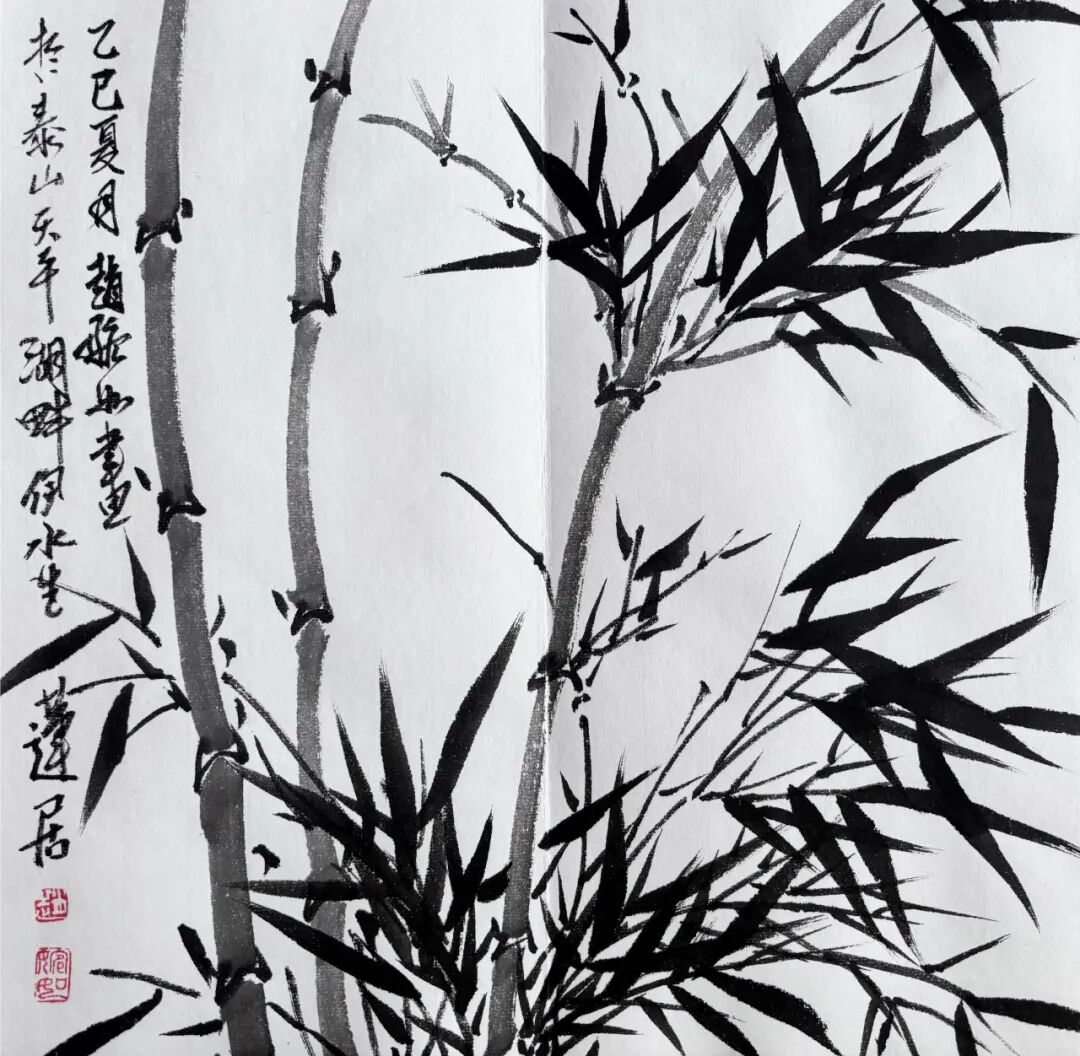 乙巳夏月趙如畫
於泰山天平湖畔伊水蓮居